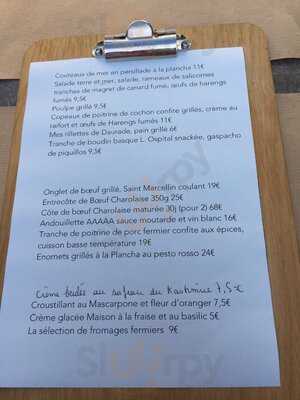 Couteaux de mer en persillade à la plancha 11€
Salade terre et mer, salade, rameaux de salicornes
tranches de magret de canard fumé, œufs de harengs
fumés 9,5€
Poulpe grillé 9,5€
Copeaux de poitrine de cochon confite grillés, crème au
raifort et œufs de Harengs fumés 11€
Mes rillettes de Daurade, pain grillé 6€
Tranche de boudin basque L. Ospital snackée, gaspacho
de piquillos 9,5€
Onglet de bœuf grillé, Saint Marcellin coulant 19€
Entrecôte de Bœuf Charolaise 350g 25€
Côte de bœuf Charolaise maturée 30j (pour 2) 68€
Andouillette AAAAA sauce moutarde et vin blanc 16€
Tranche de poitrine de porc fermier confite aux épices,
cuisson basse température 19€
Enornets grillés à la Plancha au pesto rosso 24€
Crème brûlée au safran du Kashmire 7,5€
Croustillant au Mascarpone et fleur d'oranger 7,5€
Crème glacée Maison à la fraise et au basilic 5€
La sélection de fromages fermiers 9€